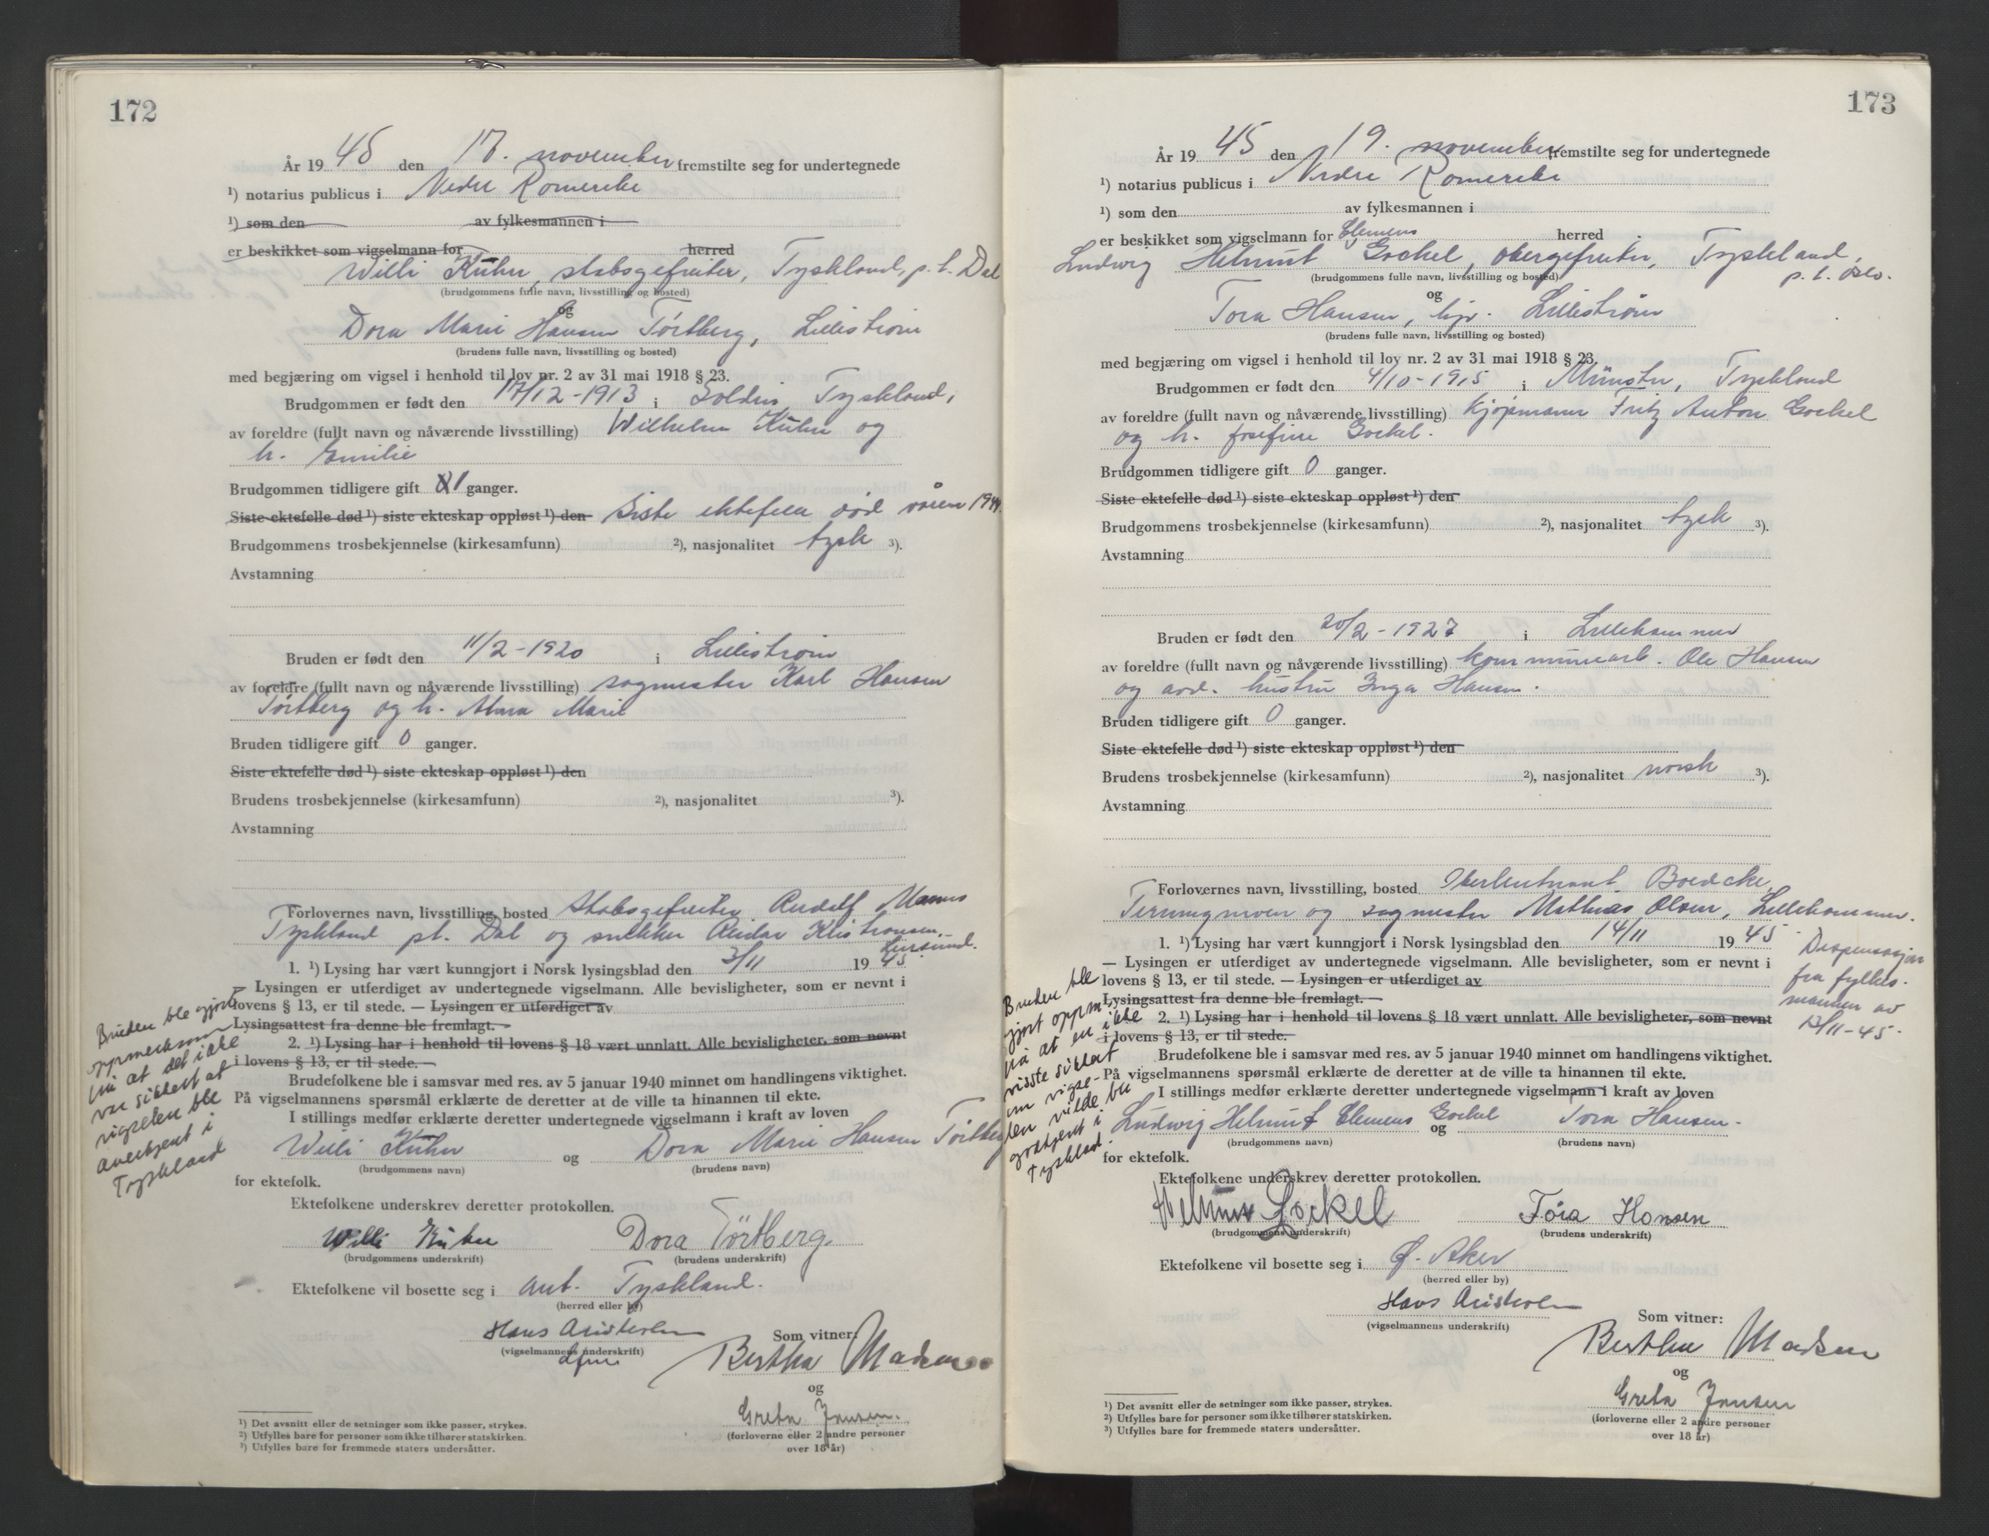 172
År 19 45 den 17. november fremstilte seg for undertegnede
¹) notarius publicus i Nedre Romerike
¹) som den av fylkesmannen i
er beskikket som vigselmann for herred
Willi Kühn, stabsgefreiter, Tyskland, p.t. Dal
(brudgommens fulle navn, livsstilling og bosted)
og
Dora Marie Hansen Törtberg, Lillestrøm
(brudens fulle navn, livsstilling og bosted)
med begjæring om vigsel i henhold til lov nr. 2 av 31 mai 1918 § 23.
Brudgommen er født den 17/12-1913 i Soldin, Tyskland,
av foreldre (fullt navn og nåværende livsstilling) Wilhelm Kühn og
h. Emilie
Brudgommen tidligere gift 1 ganger.
Siste ektefelle død ¹) siste ekteskap oppløst ¹) den Siste ektefelle død våren 1944.
Brudgommens trosbekjennelse (kirkesamfunn) ²), nasjonalitet tysk ³).
Avstamning
Bruden er født den 11/2-1920 i Lillestrøm
av foreldre (fullt navn og nåværende livsstilling) sagmester Karl Hansen
Törtberg og h. Alma Marie
Bruden tidligere gift 0 ganger.
Siste ektefelle død ¹) siste ekteskap oppløst ¹) den
Brudens trosbekjennelse (kirkesamfunn) ²), nasjonalitet ³).
Avstamning
Forlovernes navn, livsstilling, bosted Stabsgefreiter Rudolf
Tyskland pt. Dal og snekker Reidar Kristiansen,
1. ¹) Lysing har vært kunngjort i Norsk lysingsblad den 3/11 19 45.
— Lysingen er utferdiget av undertegnede vigselmann. Alle bevisligheter, som er nevnt i
lovens § 13, er til stede. — Lysingen er utferdiget av
Lysingsattest fra denne ble fremlagt. —
2. ¹) Lysing har i henhold til lovens § 18 vært unnlatt. Alle bevisligheter, som nevnt
i lovens § 13, er til stede. —
Bruden ble gjort
oppmerksom
på at det ikke
var sikkert at
vigselen ble
anerkjent i
Tyskland
Brudefolkene ble i samsvar med res. av 5 januar 1940 minnet om handlingens viktighet.
På vigselmannens spørsmål erklærte de deretter at de ville ta hinannen til ekte.
I stillings medfør erklærte deretter undertegnede vigselmann i kraft av loven
Willi Kühn og Dora Marie Hansen Törtberg
(brudgommens navn) (brudens navn)
for ektefolk.
Ektefolkene underskrev deretter protokollen.
Willi Kühn Dora Törtberg.
(brudgommens underskrift) (brudens underskrift)
Ektefolkene vil bosette seg i ant. Tyskland.
(herred eller by)
Hans
(vigselmannens underskrift)
Som vitner:
Bertha Madsen
og
Greta Jansen.
(forloverne eller 2 andre personer
over 18 år)
¹) Det avsnitt eller de setninger som ikke passer, strykes.
²) Utfylles bare for personer som ikke tilhører statskirken.
³) Utfylles bare for fremmede staters undersåtter.
173
År 19 45 den 19. november fremstilte seg for undertegnede
¹) notarius publicus i Nedre Romerike
¹) som den av fylkesmannen i
er beskikket som vigselmann for herred
Ludwig Helmut Clemens Gockel, obergefreiter, Tyskland,
p.t. Oslo.
(brudgommens fulle navn, livsstilling og bosted)
og
Tora Hansen, hjv. Lillestrøm
(brudens fulle navn, livsstilling og bosted)
med begjæring om vigsel i henhold til lov nr. 2 av 31 mai 1918 § 23.
Brudgommen er født den 4/10-1915 i Münster, Tyskland
av foreldre (fullt navn og nåværende livsstilling) kjøpmann Fritz Anton Gockel
og h. Josefine Gockel.
Brudgommen tidligere gift 0 ganger.
Siste ektefelle død ¹) siste ekteskap oppløst ¹) den
Brudgommens trosbekjennelse (kirkesamfunn) ²), nasjonalitet tysk ³).
Avstamning
Bruden er født den 20/2-1927 i Lillehammer
av foreldre (fullt navn og nåværende livsstilling) kommunearb. Ole Hansen
og avd. hustru Inga Hansen.
Bruden tidligere gift 0 ganger.
Siste ektefelle død ¹) siste ekteskap oppløst ¹) den
Brudens trosbekjennelse (kirkesamfunn) ²), nasjonalitet norsk ³).
Avstamning
Forlovernes navn, livsstilling, bosted Oberleutnant Boedcke,
Terningmoen og sagmester Mathias Olsen, Lillehammer.
1. ¹) Lysing har vært kunngjort i Norsk lysingsblad den 14/11 19 45.
— Lysingen er utferdiget av undertegnede vigselmann. Alle bevisligheter, som er nevnt i
lovens § 13, er til stede. — Lysingen er utferdiget av
Lysingsattest fra denne ble fremlagt. —
2. ¹) Lysing har i henhold til lovens § 18 vært unnlatt. Alle bevisligheter, som nevnt
i lovens § 13, er til stede. —
Dispensasjon
fra fylkes-
mannen av
12/11-45.
Bruden ble
gjort oppm.
på at en ikke
visste sikkert
om vigse-
len vilde bli
godkjent i
Tyskland.
Brudefolkene ble i samsvar med res. av 5 januar 1940 minnet om handlingens viktighet.
På vigselmannens spørsmål erklærte de deretter at de ville ta hinannen til ekte.
I stillings medfør erklærte deretter undertegnede vigselmann i kraft av loven
Ludwig Helmut Clemens Gockel og Tora Hansen.
(brudgommens navn) (brudens navn)
for ektefolk.
Ektefolkene underskrev deretter protokollen.
Helmut Gockel Tora Hansen
(brudgommens underskrift) (brudens underskrift)
Ektefolkene vil bosette seg i Ø. Aker
(herred eller by)
Hans
(vigselmannens underskrift)
Som vitner:
Bertha Madsen
og
Greta Jansen
(forloverne eller 2 andre personer
over 18 år)
¹) Det avsnitt eller de setninger som ikke passer, strykes.
²) Utfylles bare for personer som ikke tilhører statskirken.
³) Utfylles bare for fremmede staters undersåtter.